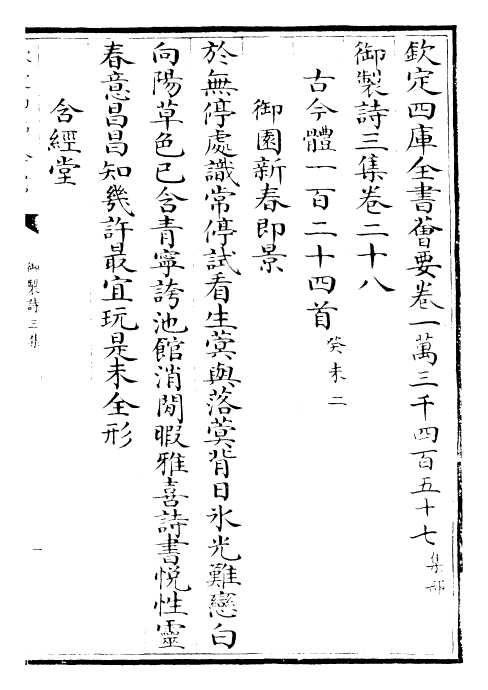 欽定四庫全書薈要卷一萬三千四百五十七集部
御製詩三集卷二十八
古今體一百二十四首癸未二
御園新春即景
於無停處識常停試看生蓂與落蓂背日氷光難戀白
向陽草色已含青寧誇池館消閒暇雅喜詩書悅性靈
春意昌昌知幾許最宜玩是未全形
含經堂
御製詩三集
一